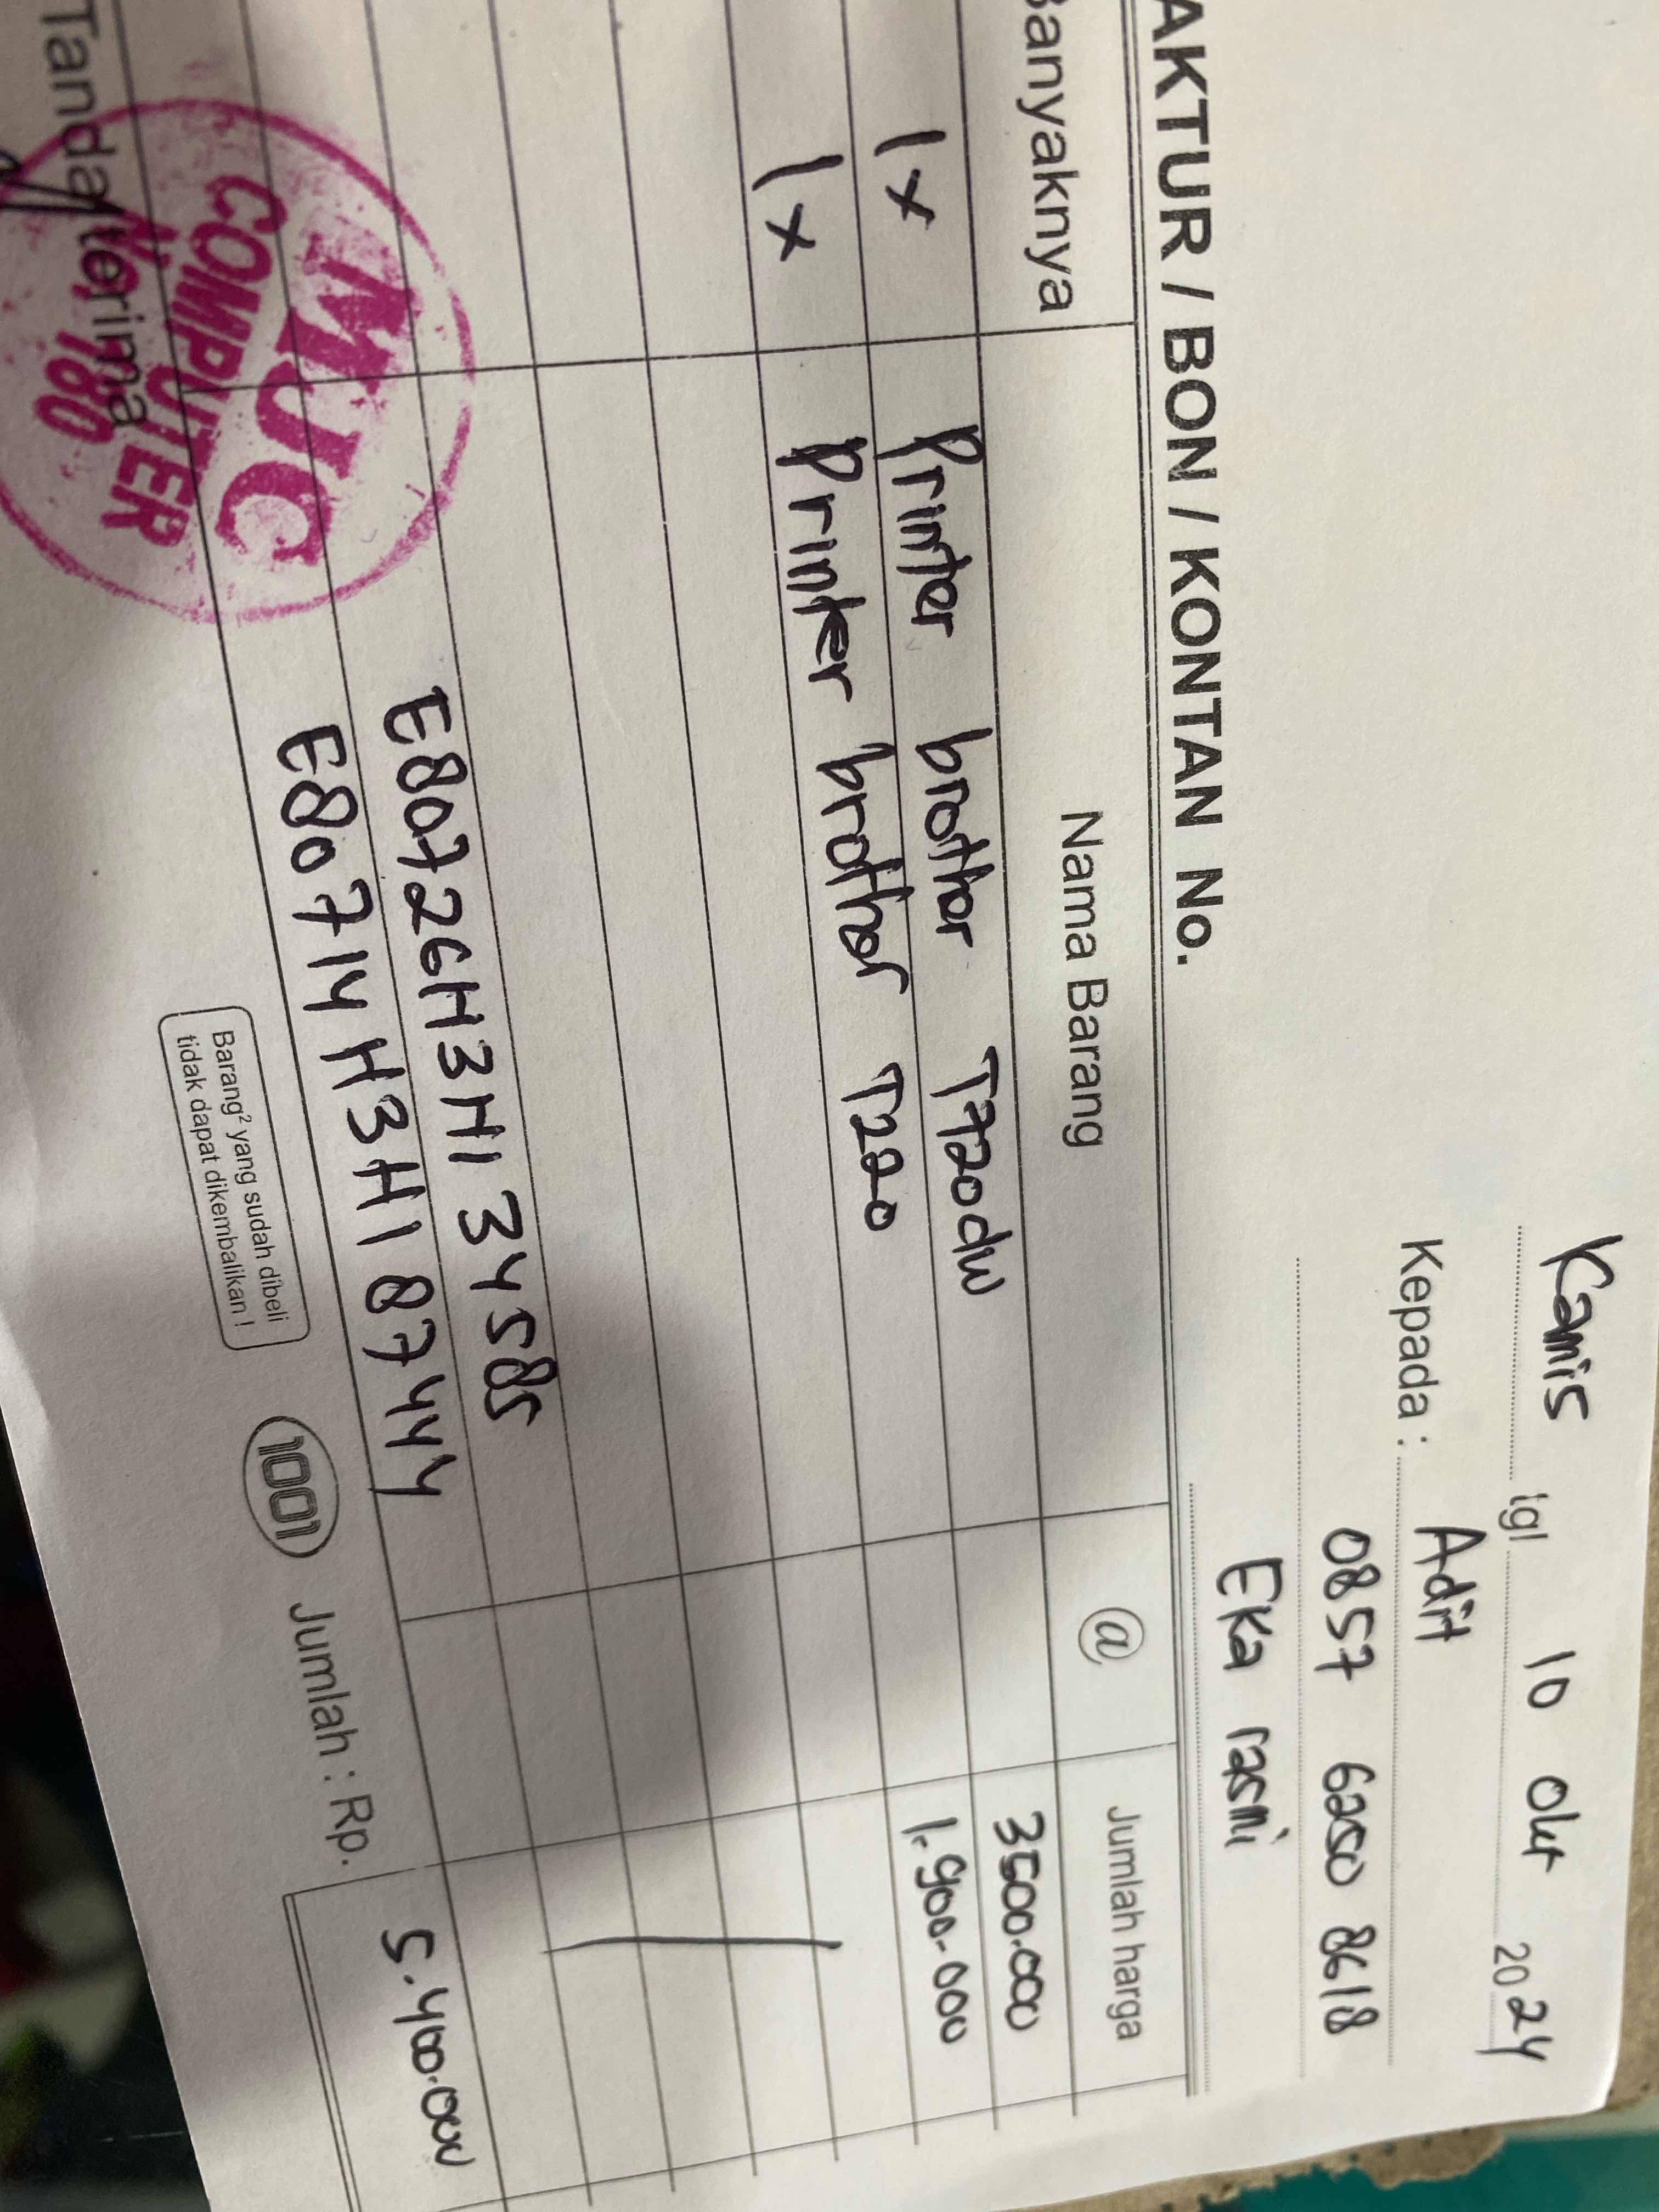 Kamis tgl 10 Okt 2024
Kepada : Adit
0857 6250 8618
Eka rasmi
AKTUR / BON / KONTAN No.
Banyaknya Nama Barang @ Jumlah harga
1x Printer brother T720dw 3500.000
1x Printer brother T220 1.900.000
E80726H3H134585
E80714H3H18744
Jumlah : Rp. 5.400.000
Tanda terima
MJC
COMPUTER
No. 180
Barang² yang sudah dibeli
tidak dapat dikembalikan !
1001